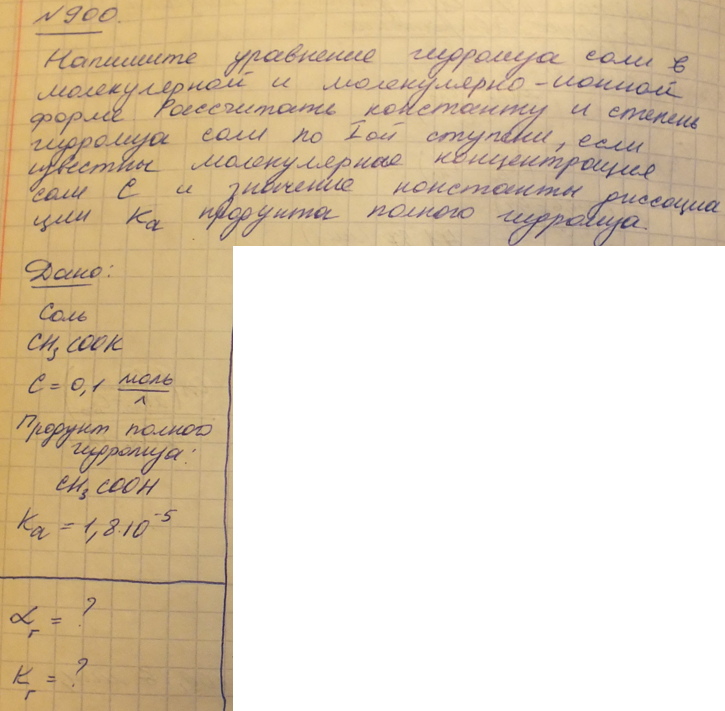 №900.
Напишите уравнение гидролиза соли в
молекулярной и молекулярно-ионной
форме Рассчитать константу и степень
гидролиза соли по Iой ступени, если
известны молекулярные концентрация
соли С и значение константы диссоциа
ции Ka продукта полного гидролиза.
Дано:
Соль
CH₃COOK
C = 0,1 моль/л
Продукт полного
гидролиза:
CH₃COOH
Ka = 1,8·10⁻⁵
αг = ?
Kг = ?